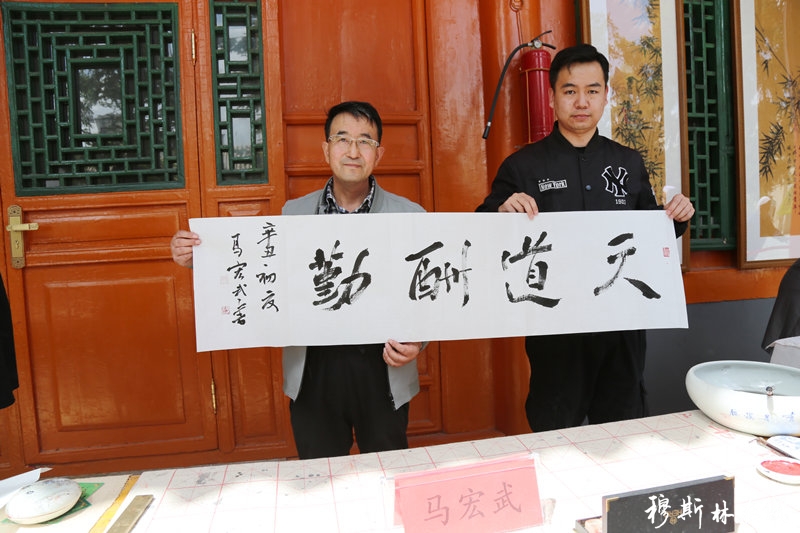 天道酬勤
辛丑初夏
马宏武书
New York
NY
马宏武
穆斯林